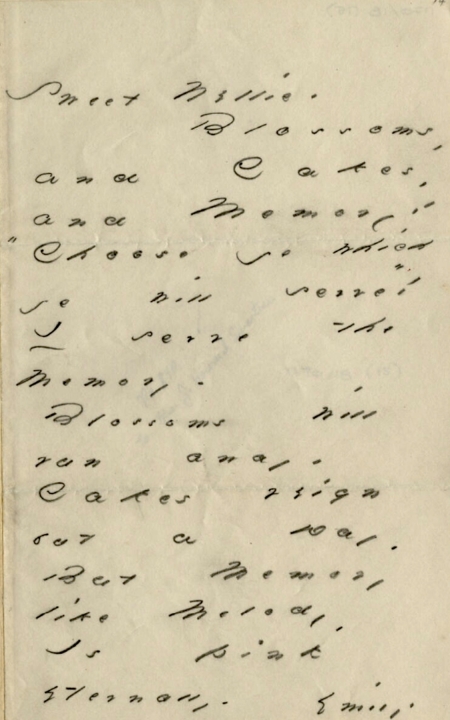 Sweet Nellie.
Blossoms,
and Cakes,
and Memory!
"Choose ye which
ye will serve"!
I serve the
Memory.
Blossoms will
run away.
Cakes reign
but a Day.
But Memory
like Melody,
Is pink
eternally.
Emily.